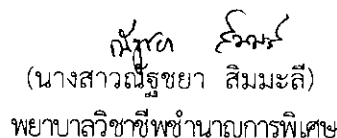 ณัฐชยา สิมมะลี
(นางสาวณัฐชยา สิมมะลี)
พยาบาลวิชาชีพชำนาญการพิเศษ